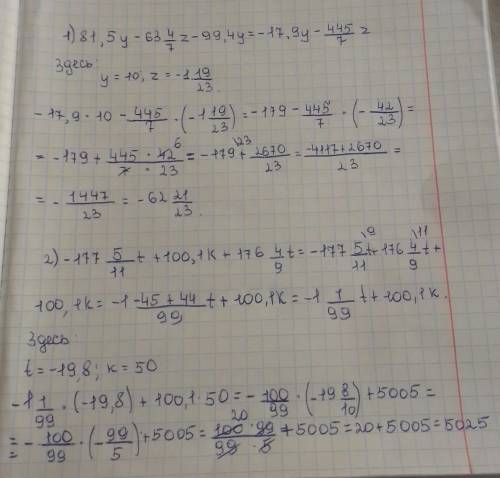 1) 81,5y - 63 4/7 z - 99,4y = -17,9y - 445/7 z
Здесь:
y = 10; z = -1 19/23.
-17,9 · 10 - 445/7 · (-1 19/23) = -179 - 445/7 · (-42/23) =
= -179 + 445 · 42 6/7 · 23 = -179 \23 + 2670/23 = -4117+2670/23 =
= -1447/23 = -62 21/23.
2) -177 5/11 t + 100,1k + 176 4/9 t = -177 5/11 \9 t + 176 4/9 \11 t +
100,1k = -1 -45 + 44/99 t + 100,1k = -1 1/99 t + 100,1k.
Здесь:
t = -19,8; k = 50
-1 1/99 · (-19,8) + 100,1 · 50 = -100/99 · (-19 8/10) + 5005 =
= -100/99 · (-99/5) + 5005 = 20 100 · 99/99 · 5 + 5005 = 20 + 5005 = 5025